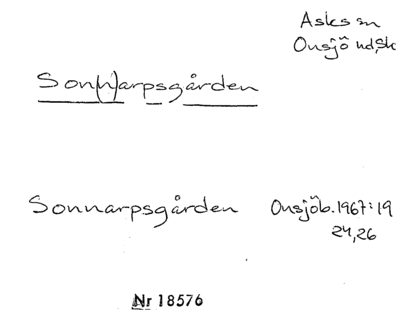 Asks sn
Onsjö hd, Sk
Son(n)arpsgården
Sonnarpsgården Onsjöb. 1967:19
24,26
Nr 18576